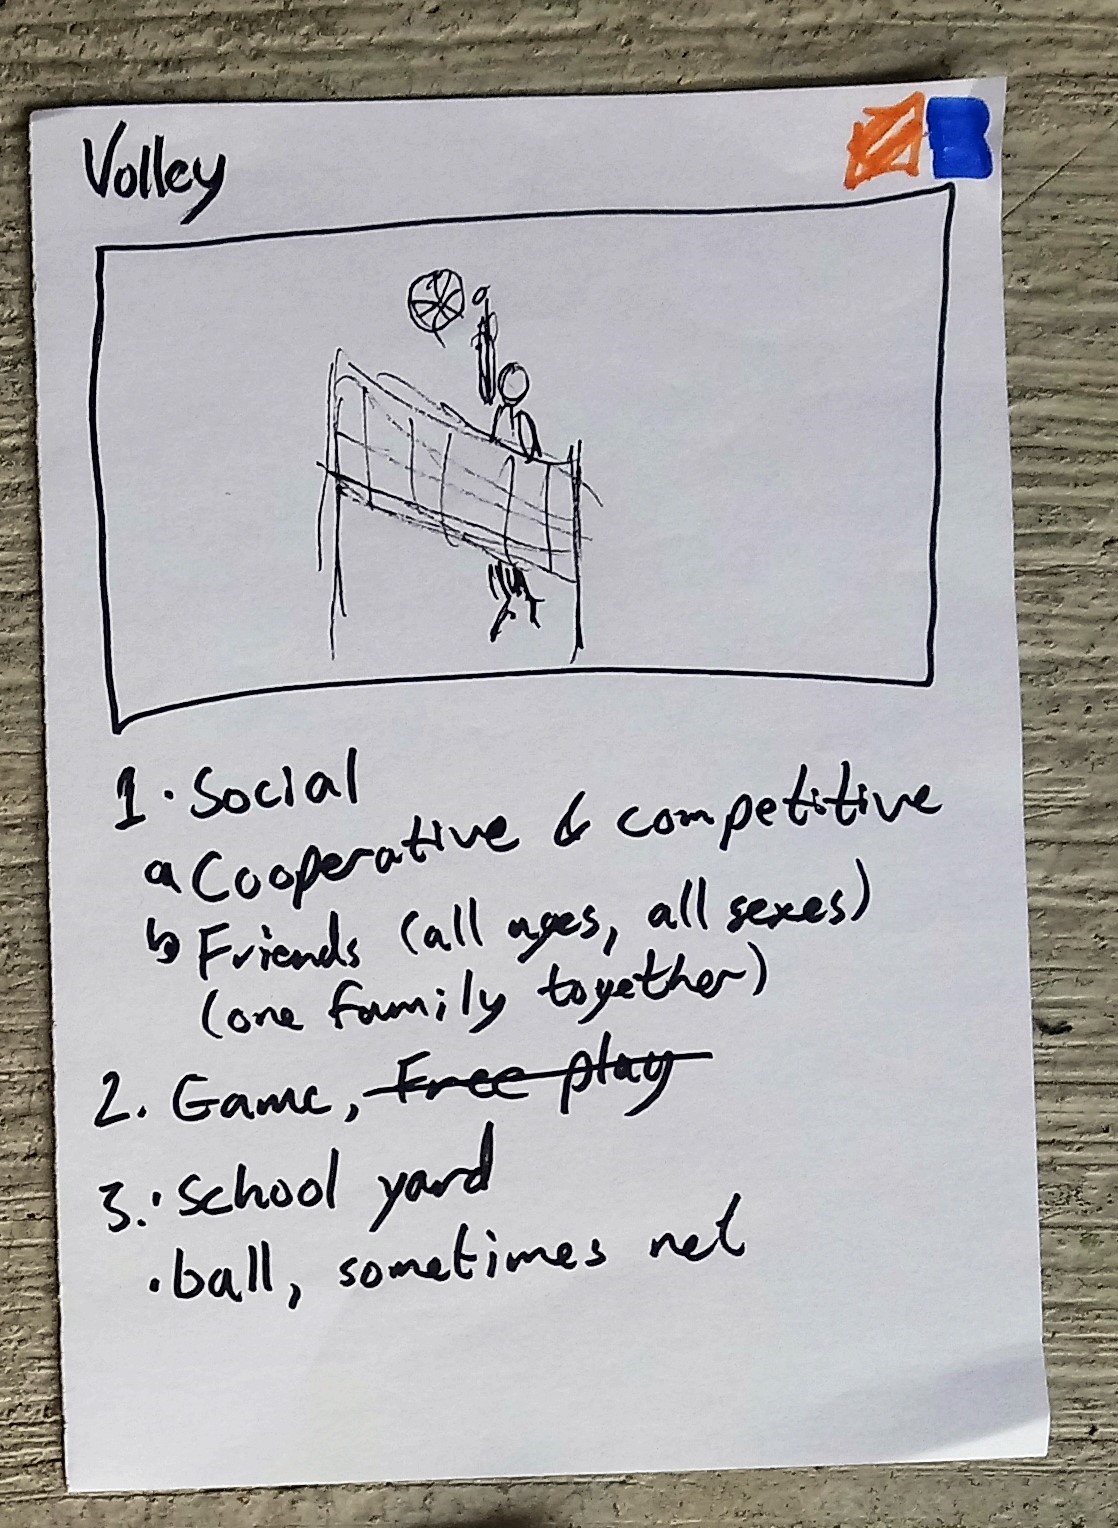 Volley
1. Social
a Cooperative & competitive
b Friends (all ages, all sexes)
(one family together)
2. Game, Free play
3. · School yard
· ball, sometimes net